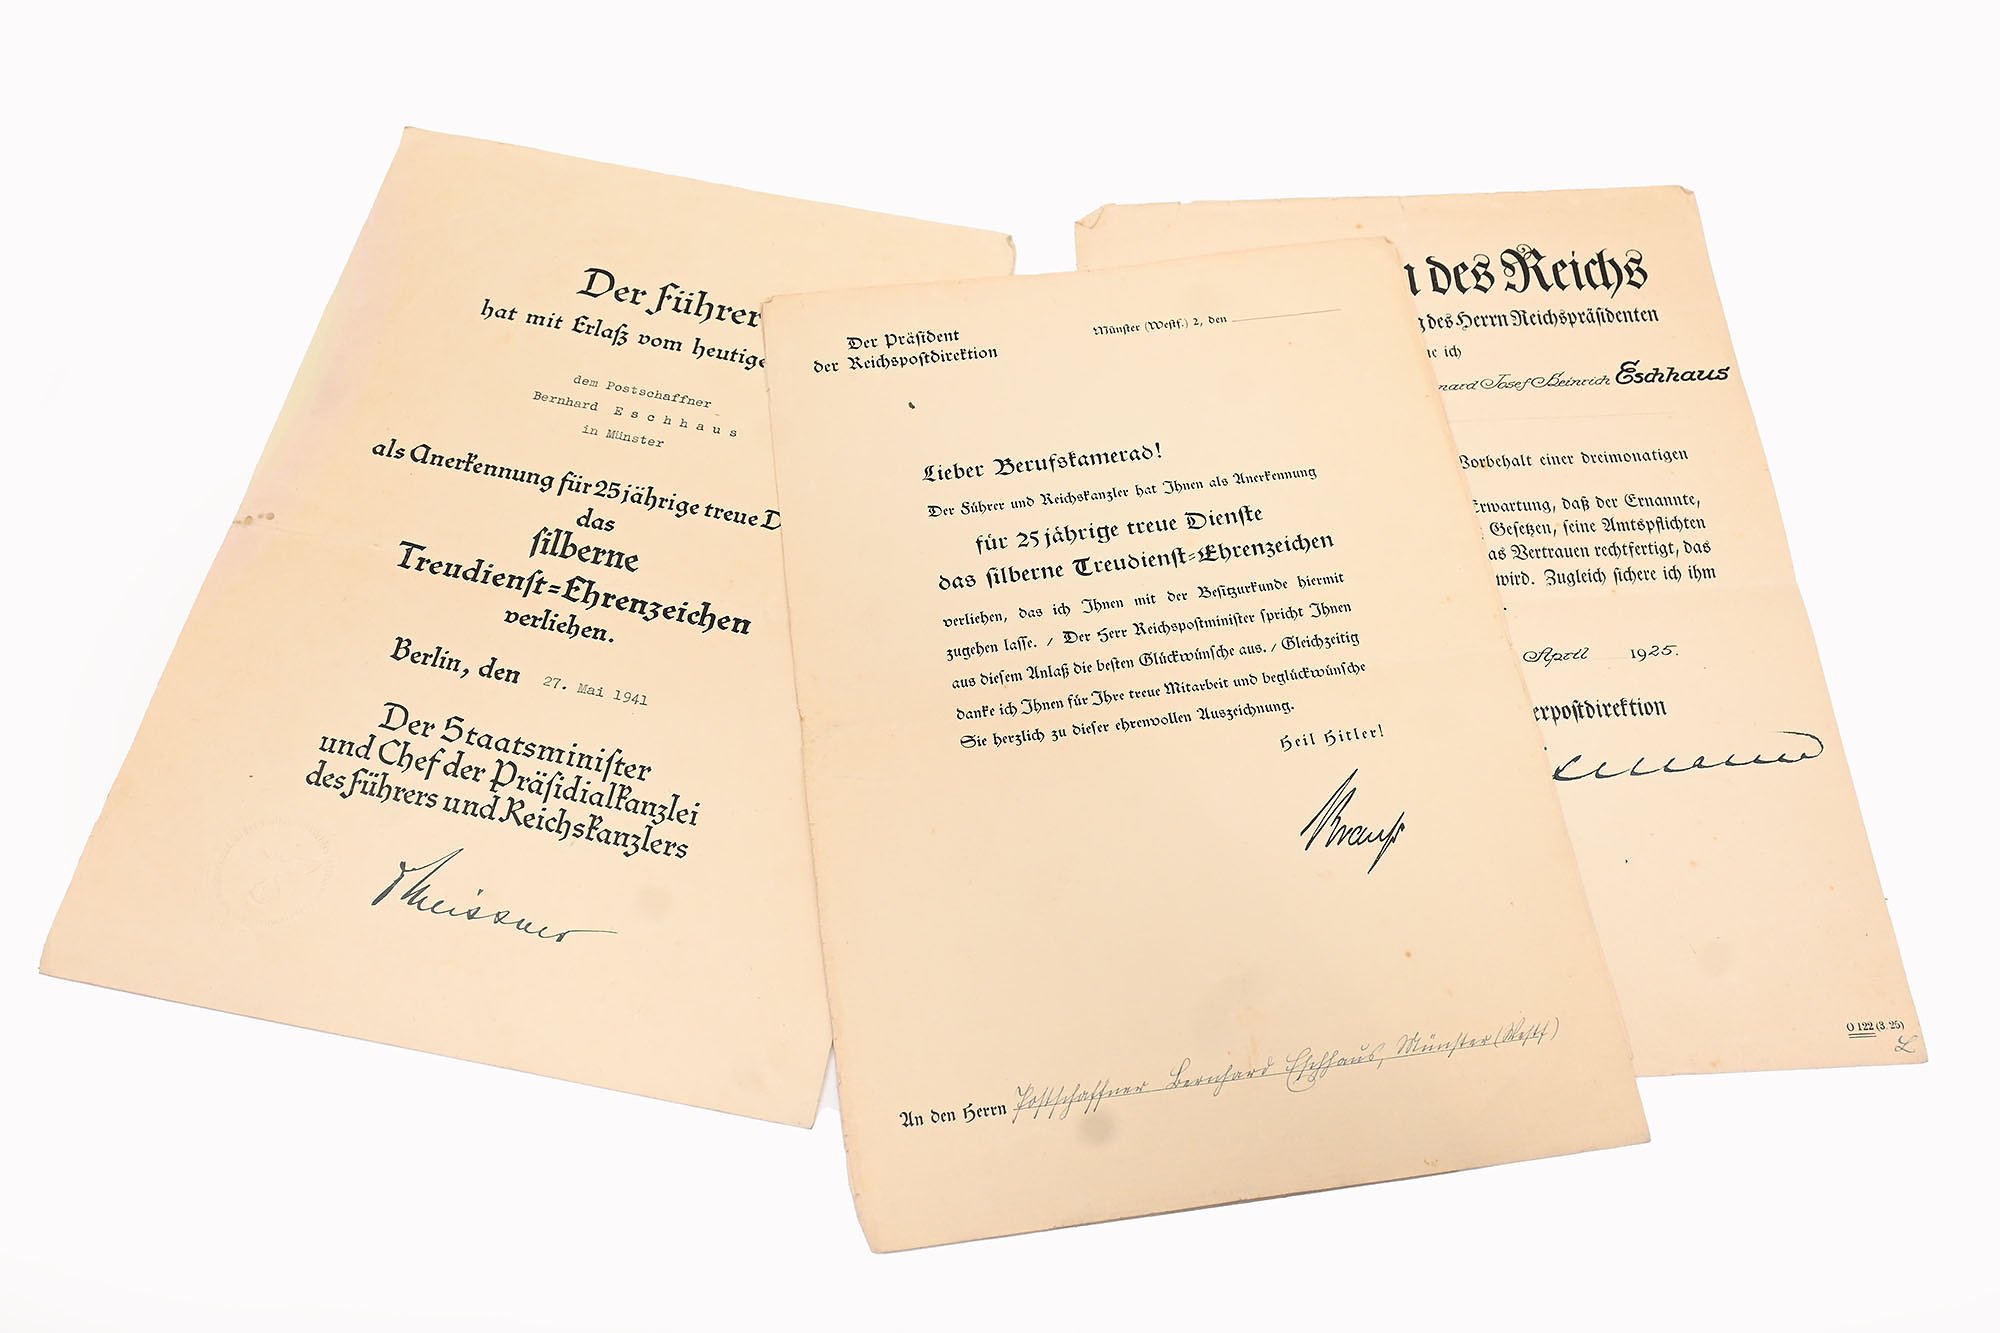 Der Führer
hat mit Erlaß vom heutige
dem Postschaffner
Bernhard Eschhaus
in Münster
als Anerkennung für 25jährige treue D
das
silberne
Treudienst=Ehrenzeichen
verliehen.
Berlin, den 27. Mai 1941
Der Staatsminister
und Chef der Präsidialkanzlei
des Führers und Reichskanzlers
Meissner
Der Präsident
der Reichspostdirektion
Münster (Westf.) 2, den
Lieber Berufskamerad!
Der Führer und Reichskanzler hat Ihnen als Anerkennung
für 25 jährige treue Dienste
das silberne Treudienst=Ehrenzeichen
verliehen, das ich Ihnen mit der Besitzurkunde hiermit
zugehen lasse. / Der Herr Reichspostminister spricht Ihnen
aus diesem Anlaß die besten Glückwünsche aus. / Gleichzeitig
danke ich Ihnen für Ihre treue Mitarbeit und beglückwünsche
Sie herzlich zu dieser ehrenvollen Auszeichnung.
Heil Hitler!
An den Herrn Postschaffner Bernhard Eschhaus, Münster (Westf)
des Reichs
des Herrn Reichspräsidenten
ne ich
nard Josef Heinrich Eschhaus
Vorbehalt einer dreimonatigen
Erwartung, daß der Ernannte,
Gesetzen, seine Amtspflichten
as Vertrauen rechtfertigt, das
wird. Zugleich sichere ich ihm
April 1925.
erpostdirektion
O 122 (3. 25)